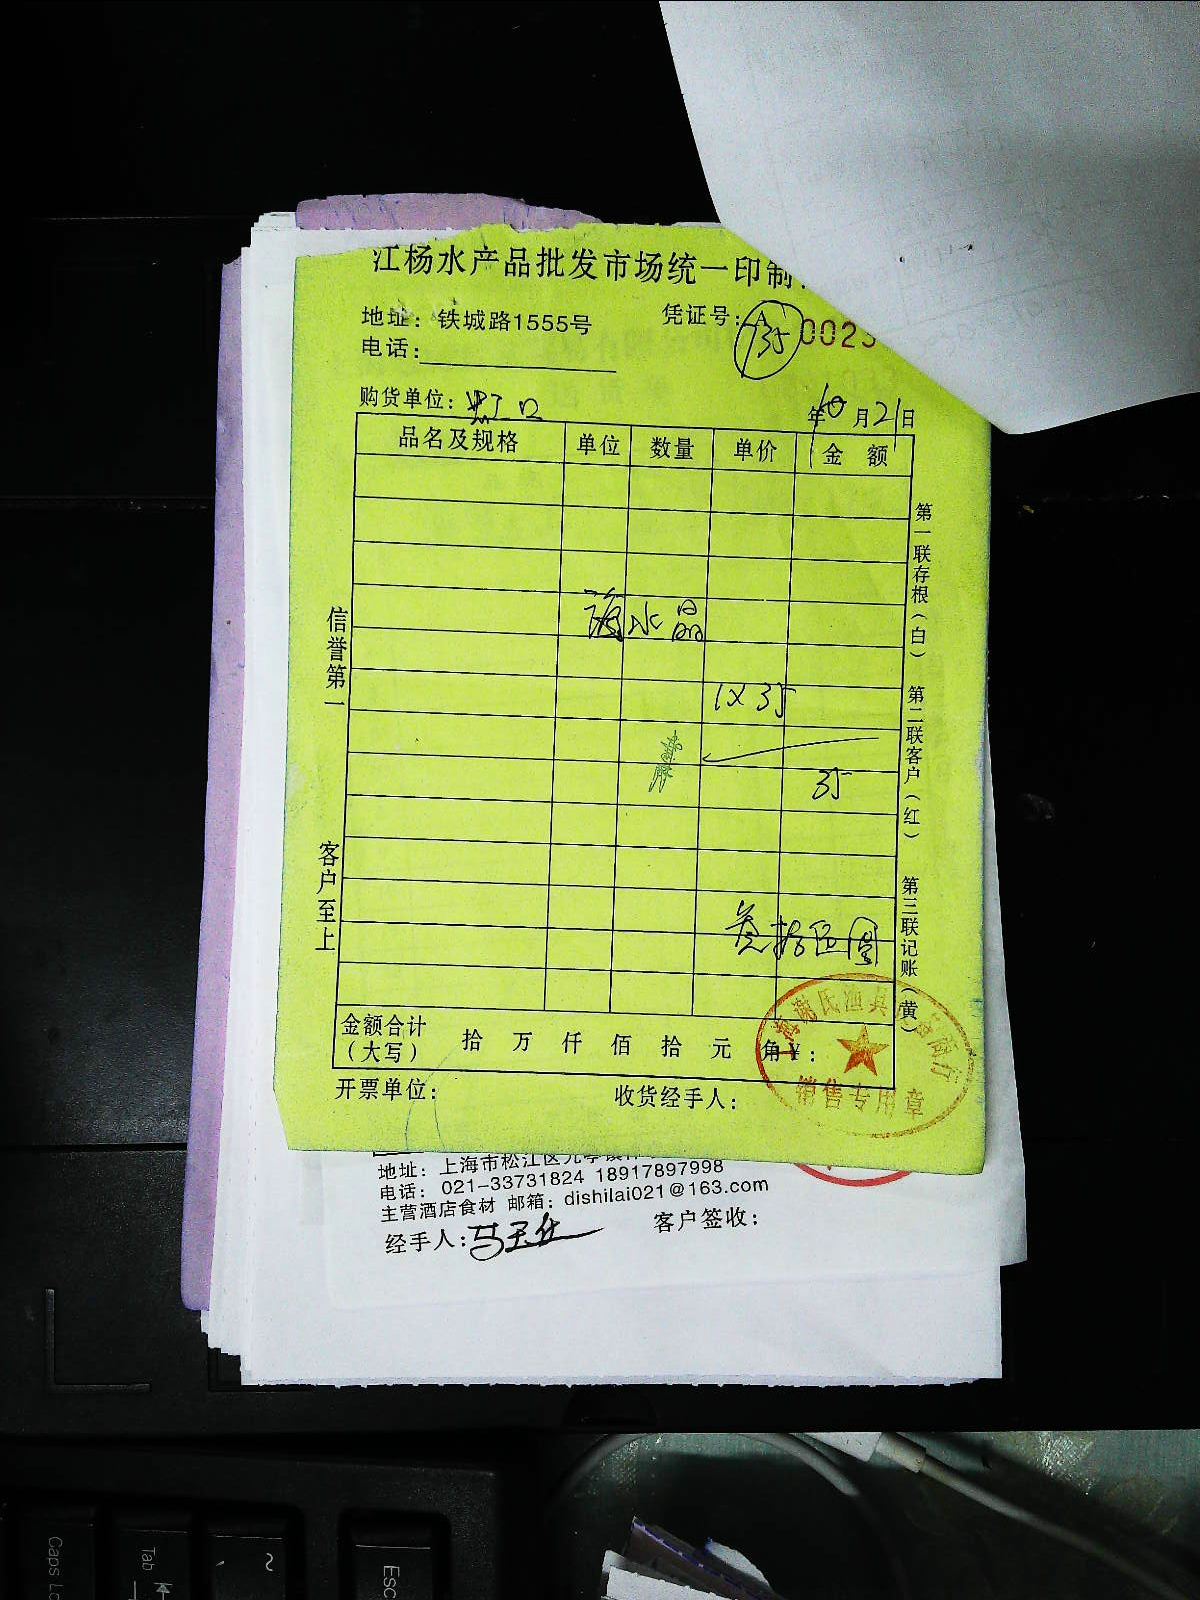 江杨水产品批发市场统一印制
地址：铁城路1555号
凭证号：
135
0023
电话：
购货单位：虹口
年10月21日
品名及规格 单位 数量 单价 金额
海水晶
1×35
35
叁拾伍圆
金额合计（大写） 拾 万 仟 佰 拾 元 角￥：
开票单位：
收货经手人：
信誉第一
客户至上
第一联存根（白）
第二联客户（红）
第三联记账（黄）
销售专用章
地址：上海市松江区九亭镇
电话：021-33731824 18917897998
主营酒店食材 邮箱：dishilai021@163.com
经手人：
客户签收：
Caps Lo
Tab
~
Esc